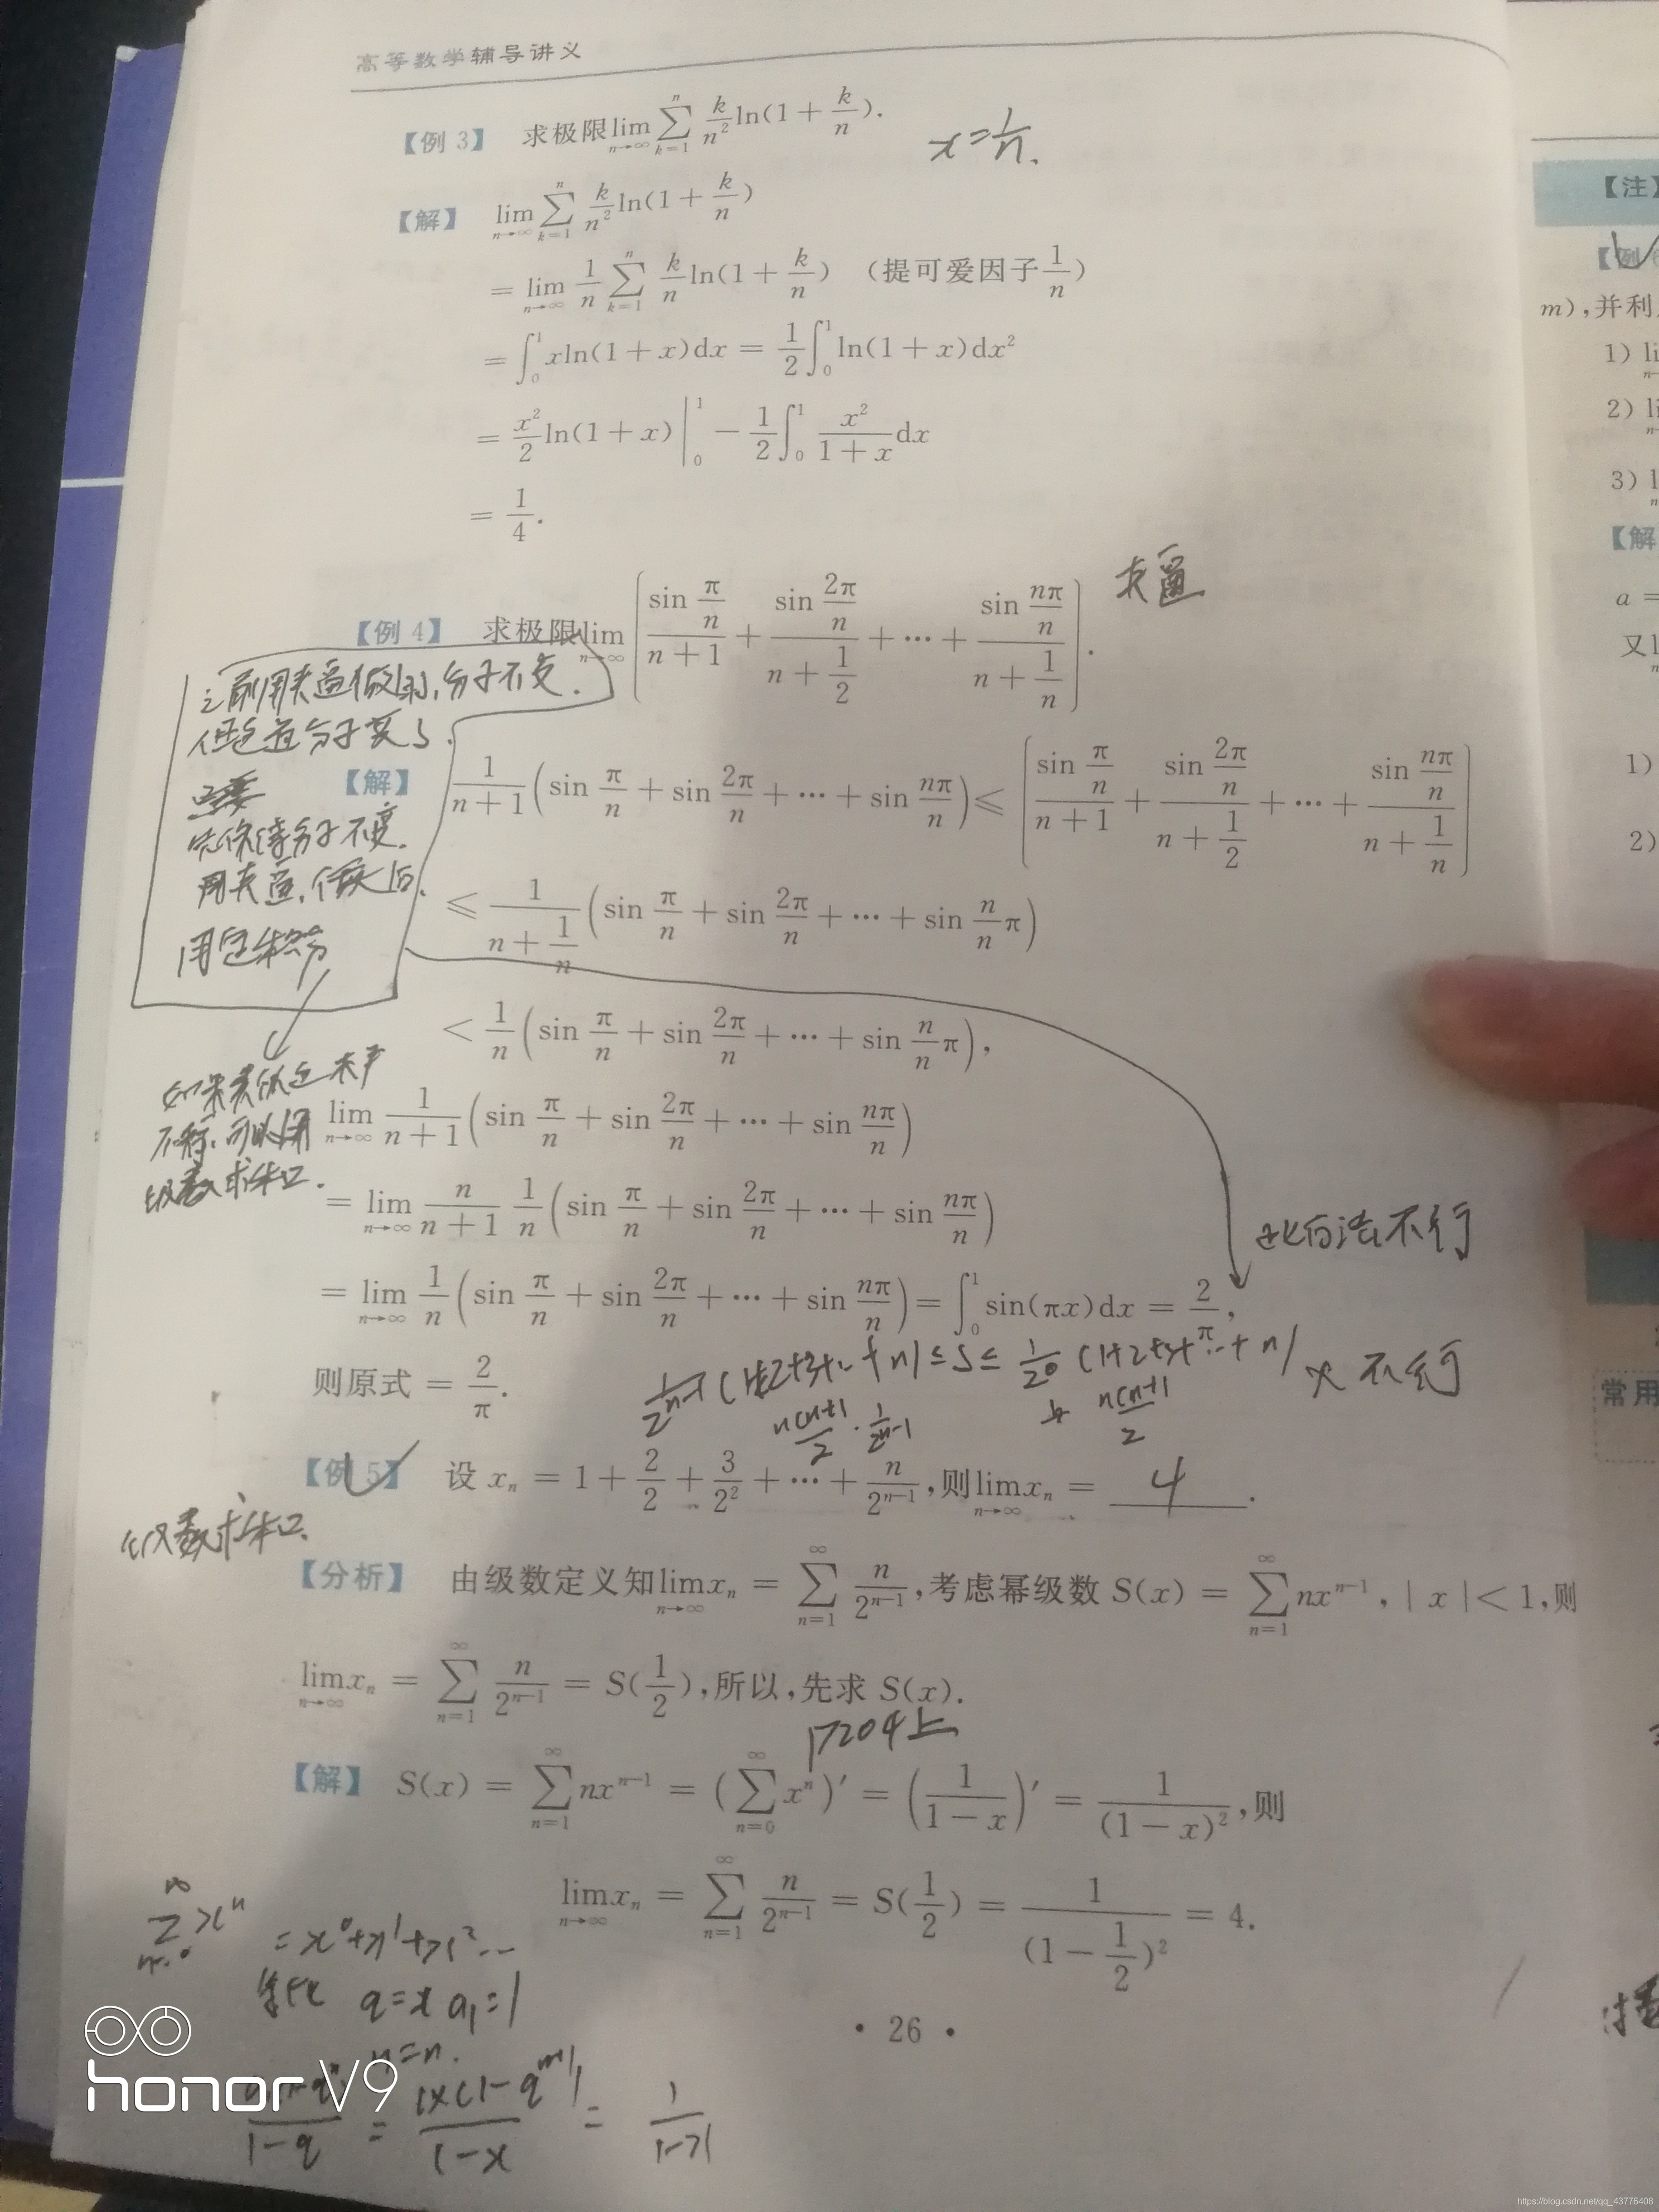 高等数学辅导讲义
【例 3】 求极限 lim_{n→∞} ∑_{k=1}^{n} k/n² ln(1 + k/n).
x = 1/n.
【解】 lim_{n→∞} ∑_{k=1}^{n} k/n² ln(1 + k/n)
= lim_{n→∞} 1/n ∑_{k=1}^{n} k/n ln(1 + k/n) (提可爱因子 1/n)
= ∫_0^1 xln(1 + x)dx = 1/2 ∫_0^1 ln(1 + x)dx²
= x²/2 ln(1 + x) |_0^1 − 1/2 ∫_0^1 x²/(1 + x) dx
= 1/4.
夹逼
【例 4】 求极限 lim_{n→∞} [sin(π/n)/(n + 1) + sin(2π/n)/(n + 1/2) + ⋯ + sin(nπ/n)/(n + 1/n)].
之前用夹逼做时,分子不变.
但这道分子变了.
【解】 1/(n + 1) (sin π/n + sin 2π/n + ⋯ + sin nπ/n) ⩽ [sin(π/n)/(n + 1) + sin(2π/n)/(n + 1/2) + ⋯ + sin(nπ/n)/(n + 1/n)]
先保持分子不变.
用夹逼,做大后.
⩽ 1/(n + 1/n) (sin π/n + sin 2π/n + ⋯ + sin n/n π)
用定积分
< 1/n (sin π/n + sin 2π/n + ⋯ + sin n/n π),
如果
lim_{n→∞} 1/(n + 1) (sin π/n + sin 2π/n + ⋯ + sin nπ/n)
不行,可以用
级数求和.
= lim_{n→∞} n/(n + 1) 1/n (sin π/n + sin 2π/n + ⋯ + sin nπ/n)
方法不行
= lim_{n→∞} 1/n (sin π/n + sin 2π/n + ⋯ + sin nπ/n) = ∫_0^1 sin(πx)dx = 2/π,
则原式 = 2/π.
1/2^{n-1} (1+2+3+⋯+n) ≤ S ≤ 1/2^0 (1+2+3+⋯+n) × 不行
n(n+1)/2 · 1/2^{n-1} n(n+1)/2
【例 5】 设 x_n = 1 + 2/2 + 3/2² + ⋯ + n/2^{n−1},则 lim_{n→∞} x_n = 4 .
级数求和.
【分析】 由级数定义知 lim_{n→∞} x_n = ∑_{n=1}^{∞} n/2^{n−1},考虑幂级数 S(x) = ∑_{n=1}^{∞} nx^{n−1}, | x | < 1,则
lim_{n→∞} x_n = ∑_{n=1}^{∞} n/2^{n−1} = S(1/2),所以,先求 S(x).
P204上
【解】 S(x) = ∑_{n=1}^{∞} nx^{n−1} = (∑_{n=0}^{∞} x^n)′ = (1/(1 − x))′ = 1/(1 − x)²,则
lim_{n→∞} x_n = ∑_{n=1}^{∞} n/2^{n−1} = S(1/2) = 1/(1 − 1/2)² = 4.
∑_{n=0}^{∞} x^n = x^0+x^1+x^2⋯
等比 q=x a_1=1
n=n.
= 1×(1−q^{n+1})/(1−x) = 1/(1−x)
· 26 ·
honor V9
【注】
m),并利
1) li
2) li
3) l
【解
a =
又l
1)
2)
常用
https://blog.csdn.net/qq_43776408